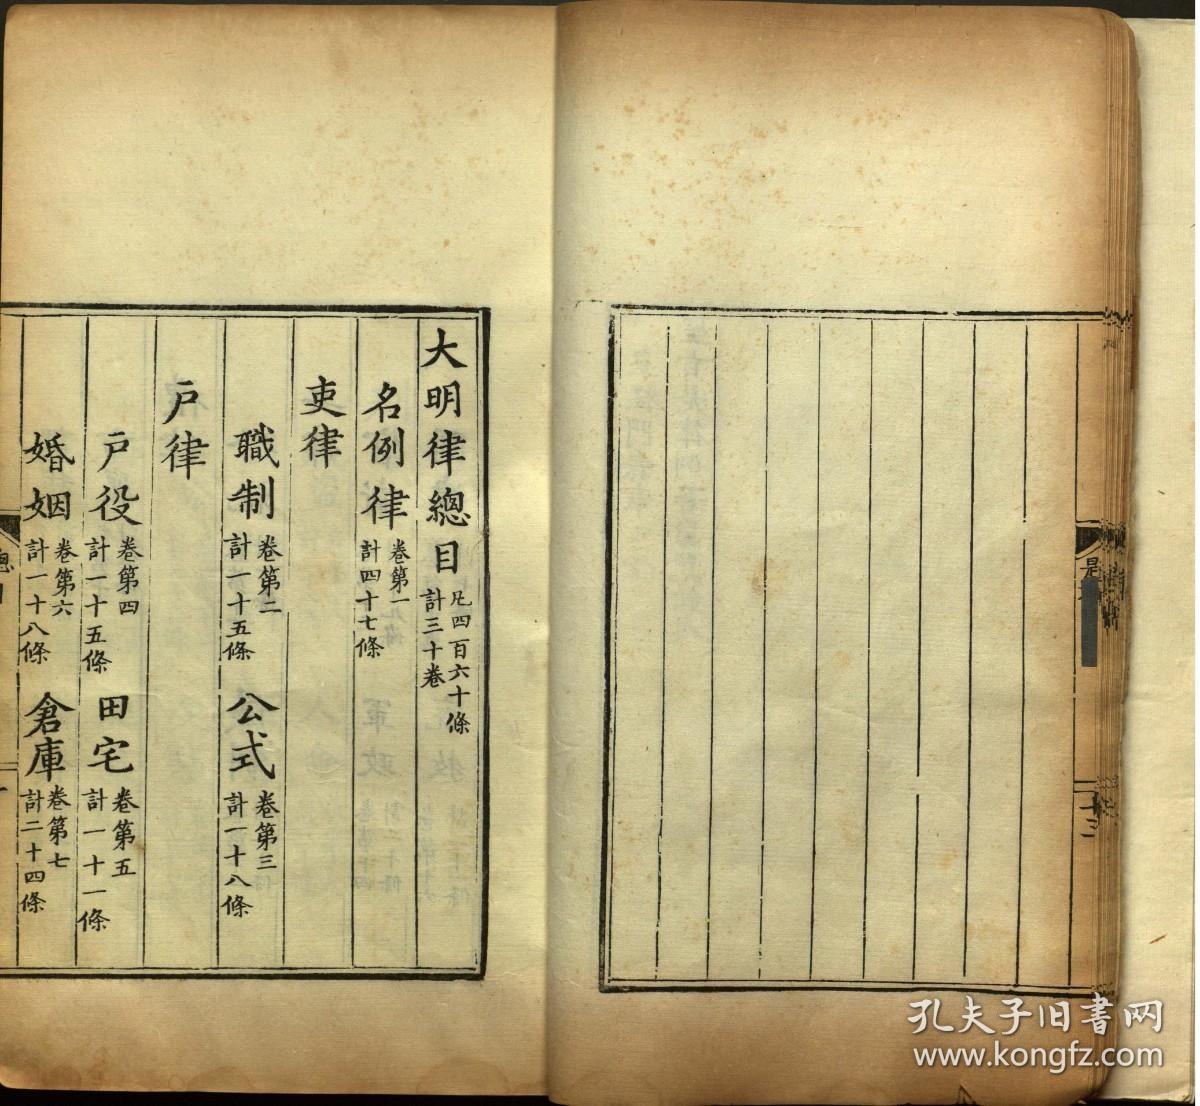 大明律總目 凡四百六十條 計三十卷
名例律 卷第一 計四十七條
吏律
職制 卷第二 計一十五條 公式 卷第三 計一十八條
戶律
戶役 卷第四 計一十五條 田宅 卷第五 計一十一條
婚姻 卷第六 計一十八條 倉庫 卷第七 計二十四條
十三
孔夫子旧书网
www.kongfz.com